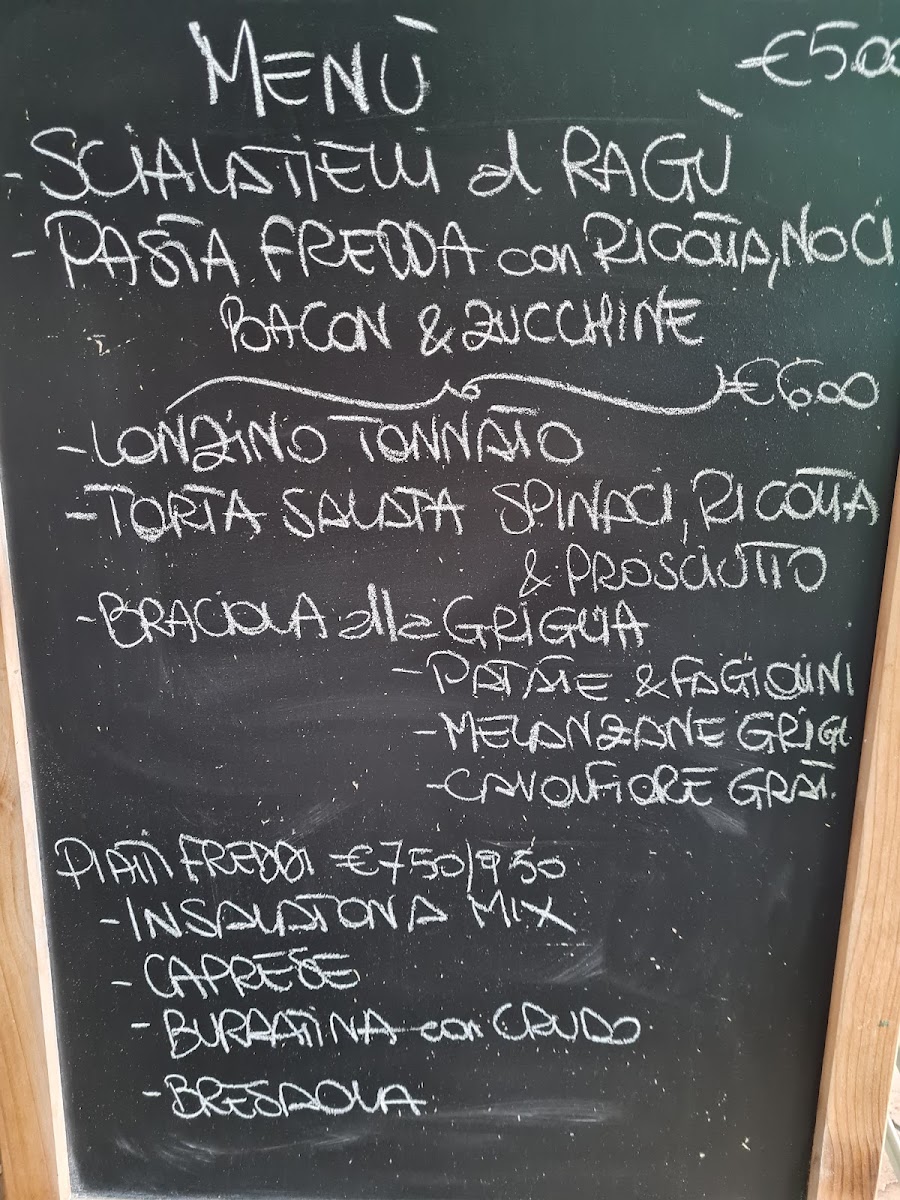 MENÙ €5.00
- SCIALATIELLI al RAGÙ
- PASTA FREDDA con RICOTTA, NOCI
BACON & ZUCCHINE
€6.00
- LONZINO TONNATO
- TORTA SALATA SPINACI, RICOTTA
& PROSCIUTTO
- BRACIOLA alla GRIGLIA
- PATATE & FAGIOLINI
- MELANZANE GRIGL.
- CAVOLFIORE GRAT.
PIATTI FREDDI €7.50/9.50
- INSALATONA MIX
- CAPRESE
- BURRATINA con CRUDO
- BRESAOLA